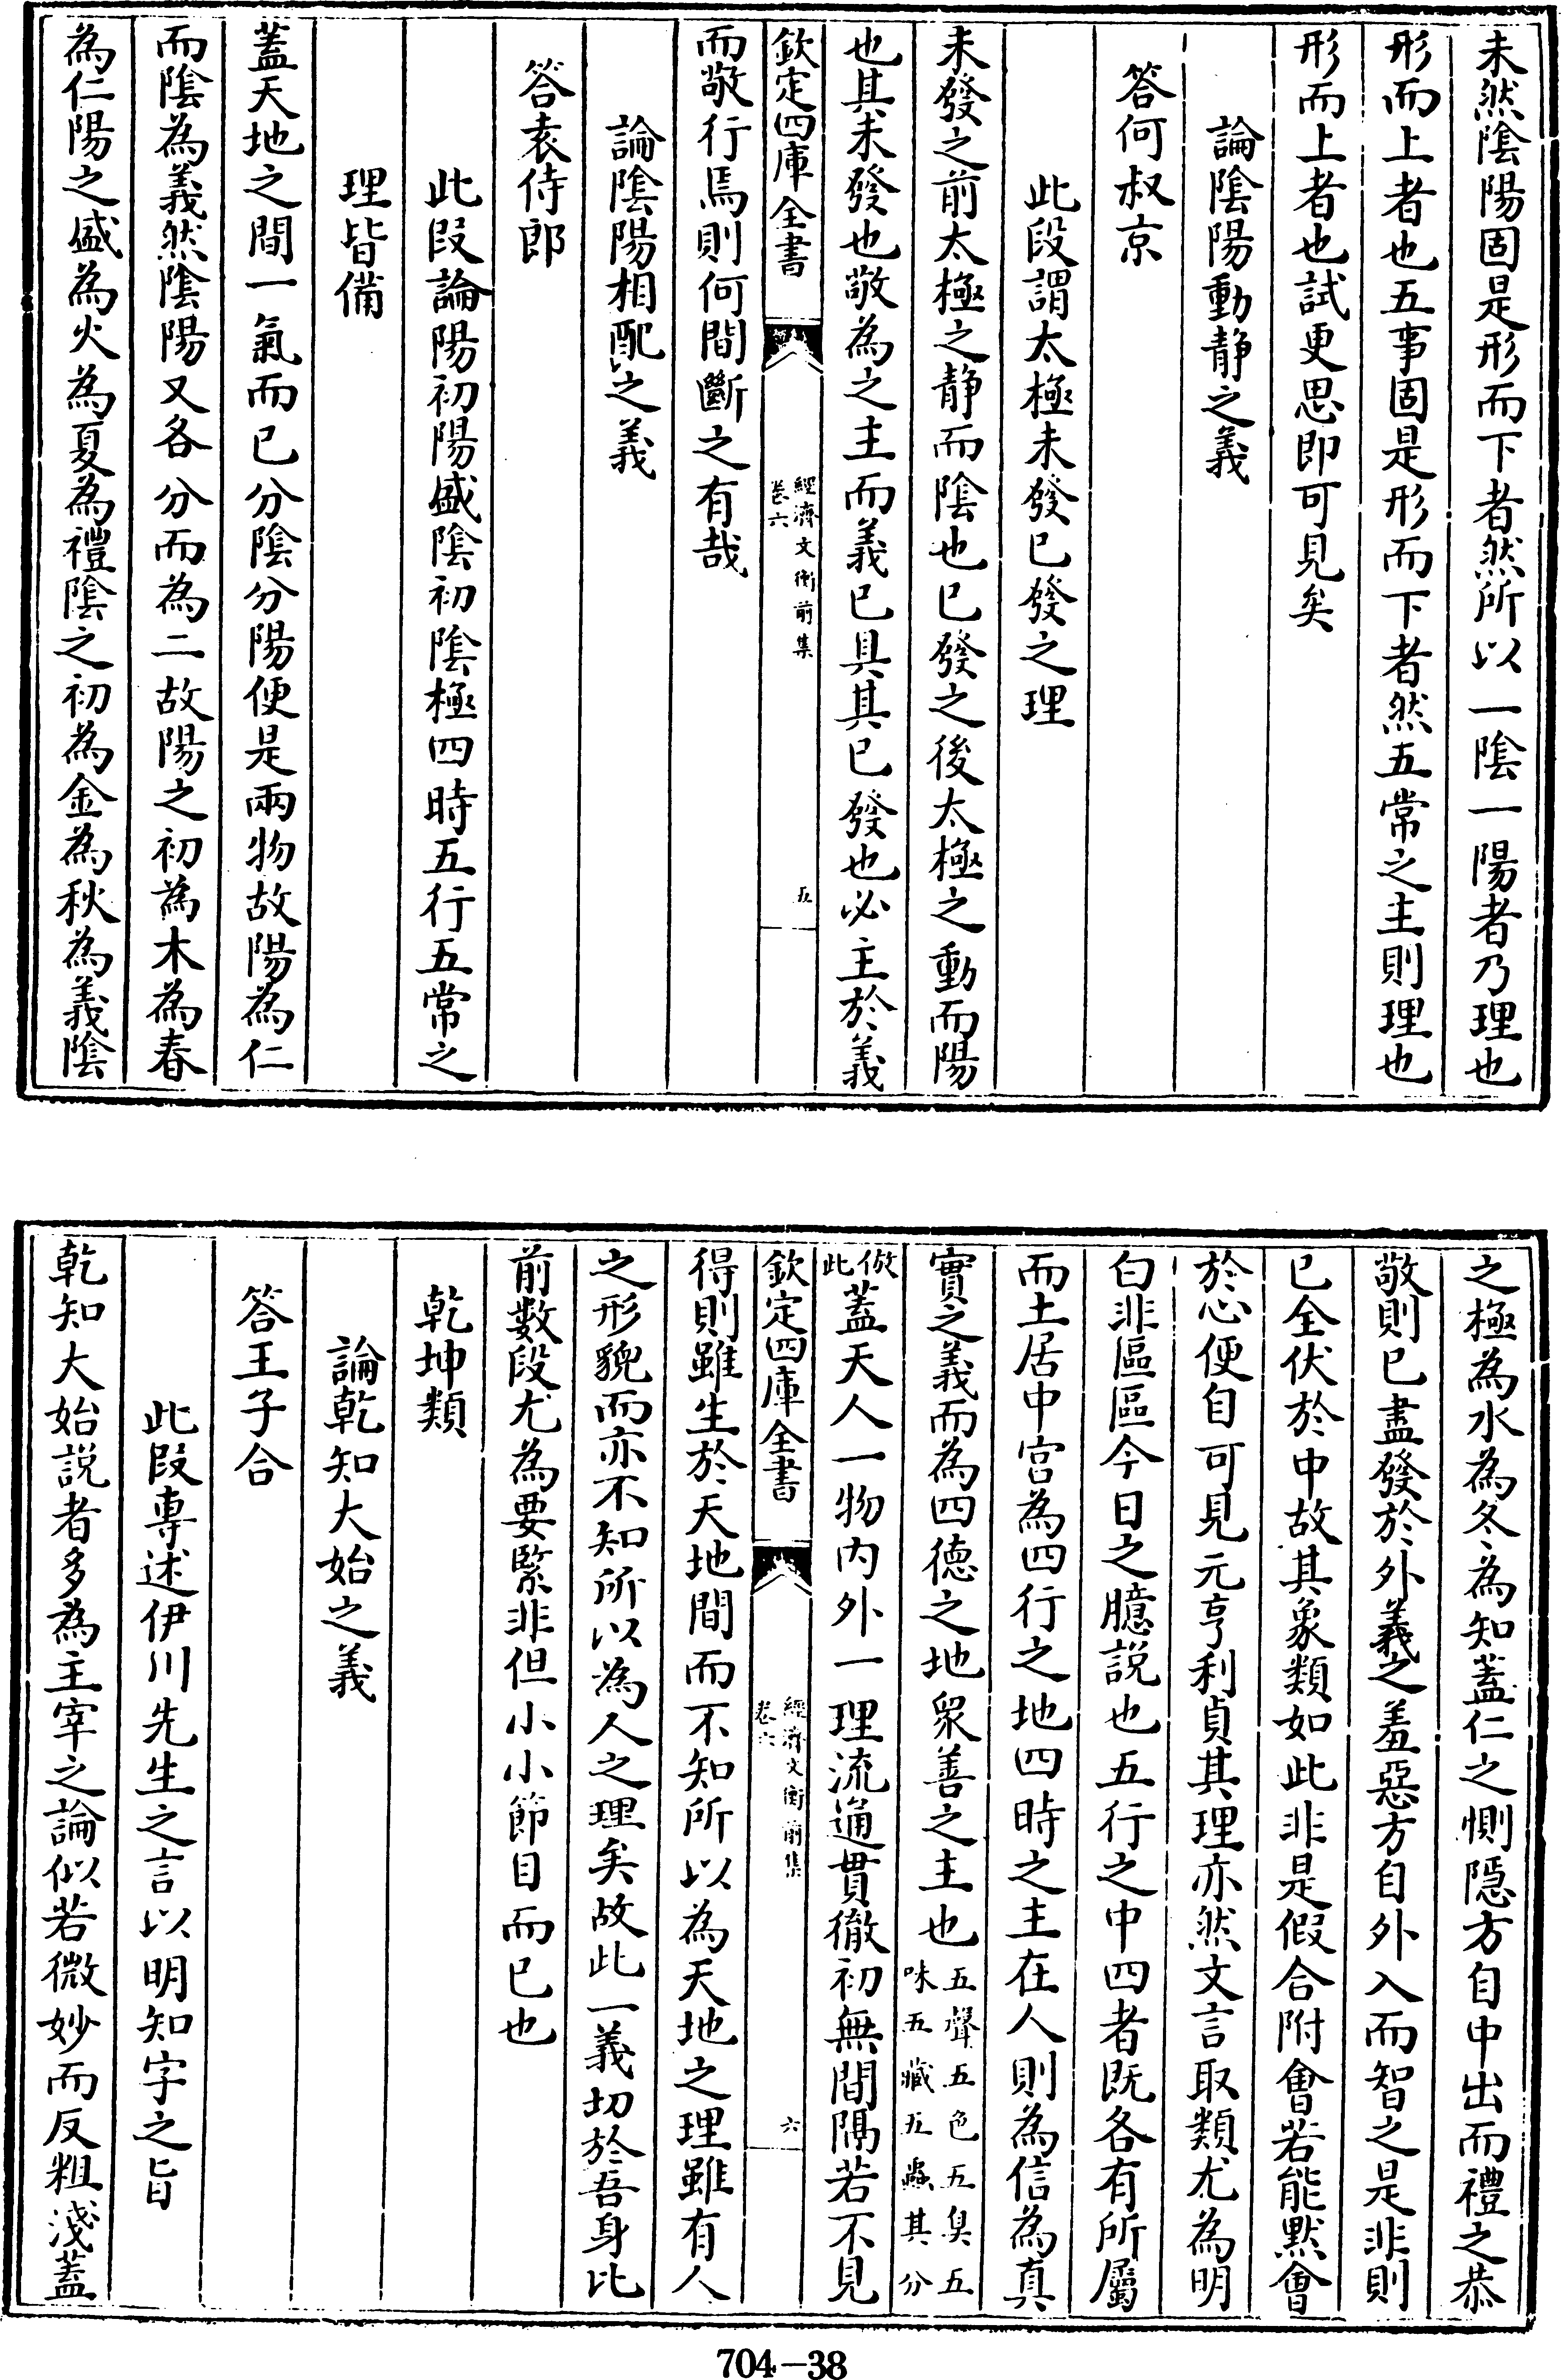 未然陰陽固是形而下者然所以一陰一陽者乃理也
形而上者也五事固是形而下者然五常之主則理也
形而上者也試更思即可見矣
論陰陽動静之義
答何叔京
此段謂太極未發已發之理
未發之前太極之静而陰也已發之後太極之動而陽
也其未發也敬為之主而義已具其已發也必主於義
欽定四庫全書
經濟文衡前集
卷六
五
而敬行焉則何間斷之有哉
論陰陽相配之義
答袁侍郎
此段論陽初陽盛陰初陰極四時五行五常之
理皆備
蓋天地之間一氣而已分陰分陽便是兩物故陽為仁
而陰為義然陰陽又各分而為二故陽之初為木為春
為仁陽之盛為火為夏為禮陰之初為金為秋為義陰
之極為水為冬為知蓋仁之惻隠方自中出而禮之恭
敬則已盡發於外義之羞惡方自外入而智之是非則
已全伏於中故其象類如此非是假合附會若能黙會
於心便自可見元亨利貞其理亦然文言取類尤為明
白非區區今日之臆説也五行之中四者既各有所屬
而土居中宫為四行之地四時之主在人則為信為真
實之義而為四德之地衆善之主也五聲五色五臭五
味五藏五蟲其分
倣
此蓋天人一物内外一理流通貫徹初無間隔若不見
欽定四庫全書
經濟文衡前集
卷六
六
得則雖生於天地間而不知所以為天地之理雖有人
之形貌而亦不知所以為人之理矣故此一義切於吾身比
前數段尤為要緊非但小小節目而已也
乾坤類
論乾知大始之義
答王子合
此段専述伊川先生之言以明知字之旨
乾知大始説者多為主宰之論似若微妙而反粗淺蓋
704-38